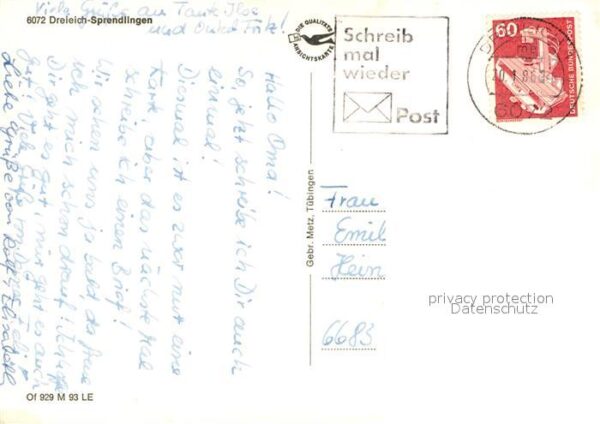 Viele Grüße an Tante Ilse
und Onkel Fritz!
6072 Dreieich-Sprendlingen
DIE QUALITÄTS
ANSICHTSKARTE
Schreib
mal
wieder
Post
60
DEUTSCHE BUNDESPOST
Hallo Oma!
So, jetzt schreibe ich Dir auch
einmal!
Diesmal ist es zwar nur eine
Karte, aber das nächste Mal
schreibe ich einen Brief!
Wir sehen uns ja bald, da freue
ich mich schon drauf!
Dir geht es gut, mir geht es auch
gut! Viele Grüße von
Liebe Grüße von Rolf & Elisabeth
Gebr. Metz, Tübingen
Frau
Emil
Hein
6683
privacy protection
Datenschutz
Of 929 M 93 LE